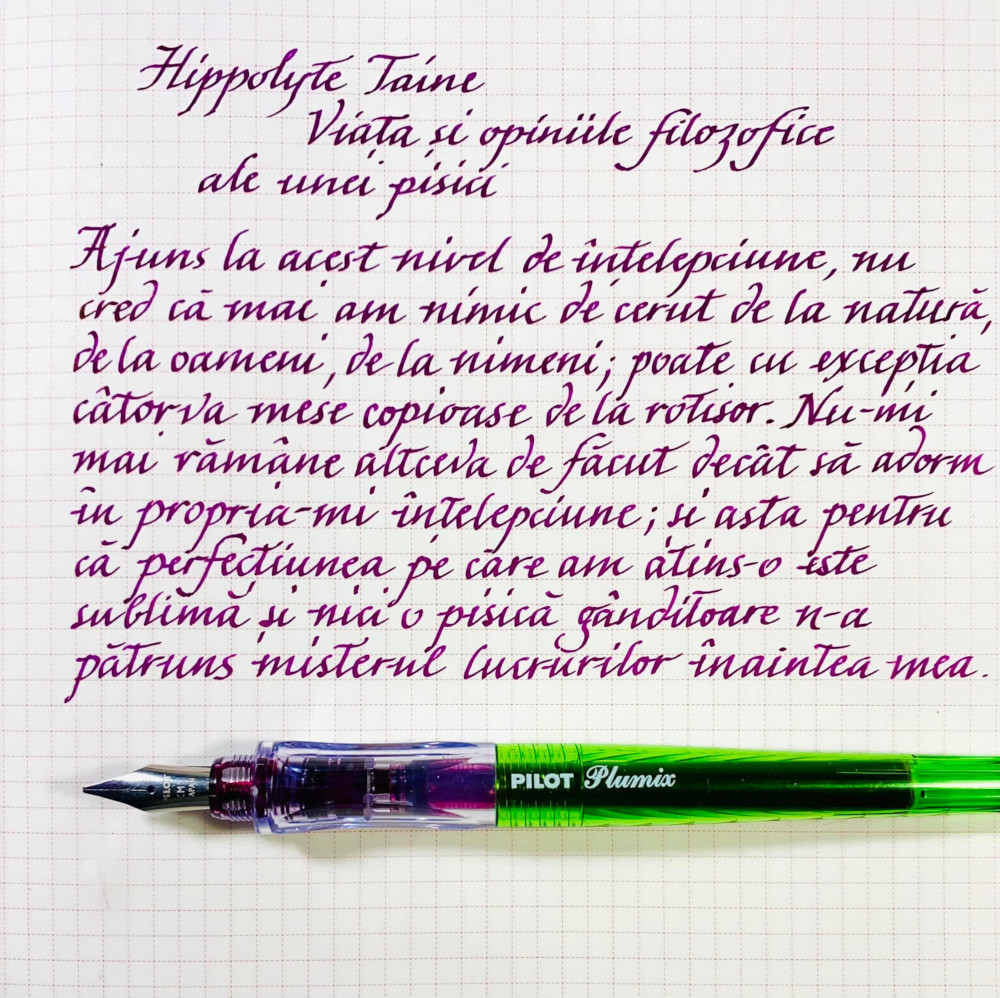 Hippolyte Taine
Viața și opiniile filozofice
ale unei pisici
Ajuns la acest nivel de înțelepciune, nu
cred că mai am nimic de cerut de la natură,
de la oameni, de la nimeni; poate cu excepția
câtorva mese copioase de la rotisor. Nu-mi
mai rămâne altceva de făcut decât să adorm
în propria-mi înțelepciune; și asta pentru
că perfecțiunea pe care am atins-o este
sublimă și nici o pisică gânditoare n-a
pătruns misterul lucrurilor înaintea mea.
PILOT Plumix